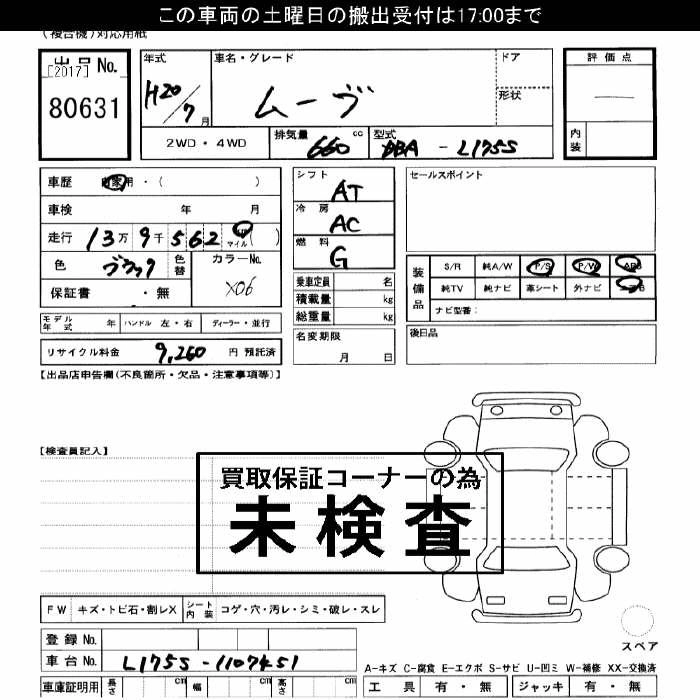 この車両の土曜日の搬出受付は17:00まで
(複合機)対応用紙
出品 No.
[2017]
80631
年式
H20/7月
車名・グレード
ムーヴ
ドア
形状
評価点
内装
2WD・4WD
排気量 660 cc
型式 DBA - L175S
車歴 自家用・( )
車検 年 月
走行 13万9千562 マイル( )
色 ブラック 色替
カラーNo. X06
保証書 ・無
シフト AT
冷房 AC
燃料 G
乗車定員 名
積載量 kg
総重量 kg
名変期限 月 日
セールスポイント
装備品
S/R 純A/W P/S P/W ABS
純TV 純ナビ 革シート 外ナビ
ナビ型番:
後日品
モデル年式 年 ハンドル 左・右 ディーラー・並行
リサイクル料金 9,260 円 預託済
【出品店申告欄(不良箇所・欠品・注意事項等)】
【検査員記入】
買取保証コーナーの為
未検査
FW キズ・トビ石・割レX シート内装 コゲ・穴・汚レ・シミ・破レ・スレ
登録 No.
車台 No. L175S-1107451
車庫証明用 長さ cm 幅 cm 高さ cm
スペア
A-キズ C-腐食 E-エクボ S-サビ U-凹ミ W-補修 XX-交換済
工具 有・無 ジャッキ 有・無